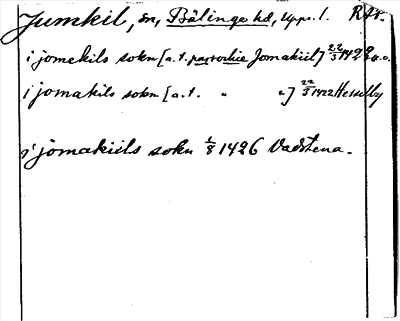 Jumkil, sn, Bälinge hd, Upps. l. RAp.
i jomekils sokn [a.t. parrochie Jomakiil] 22/5 1422 a.o.
i jomakils sokn [a.t. " "] 22/5 1422 Hesselby
i jomakiils sokn 1/8 1426 Vadstena.